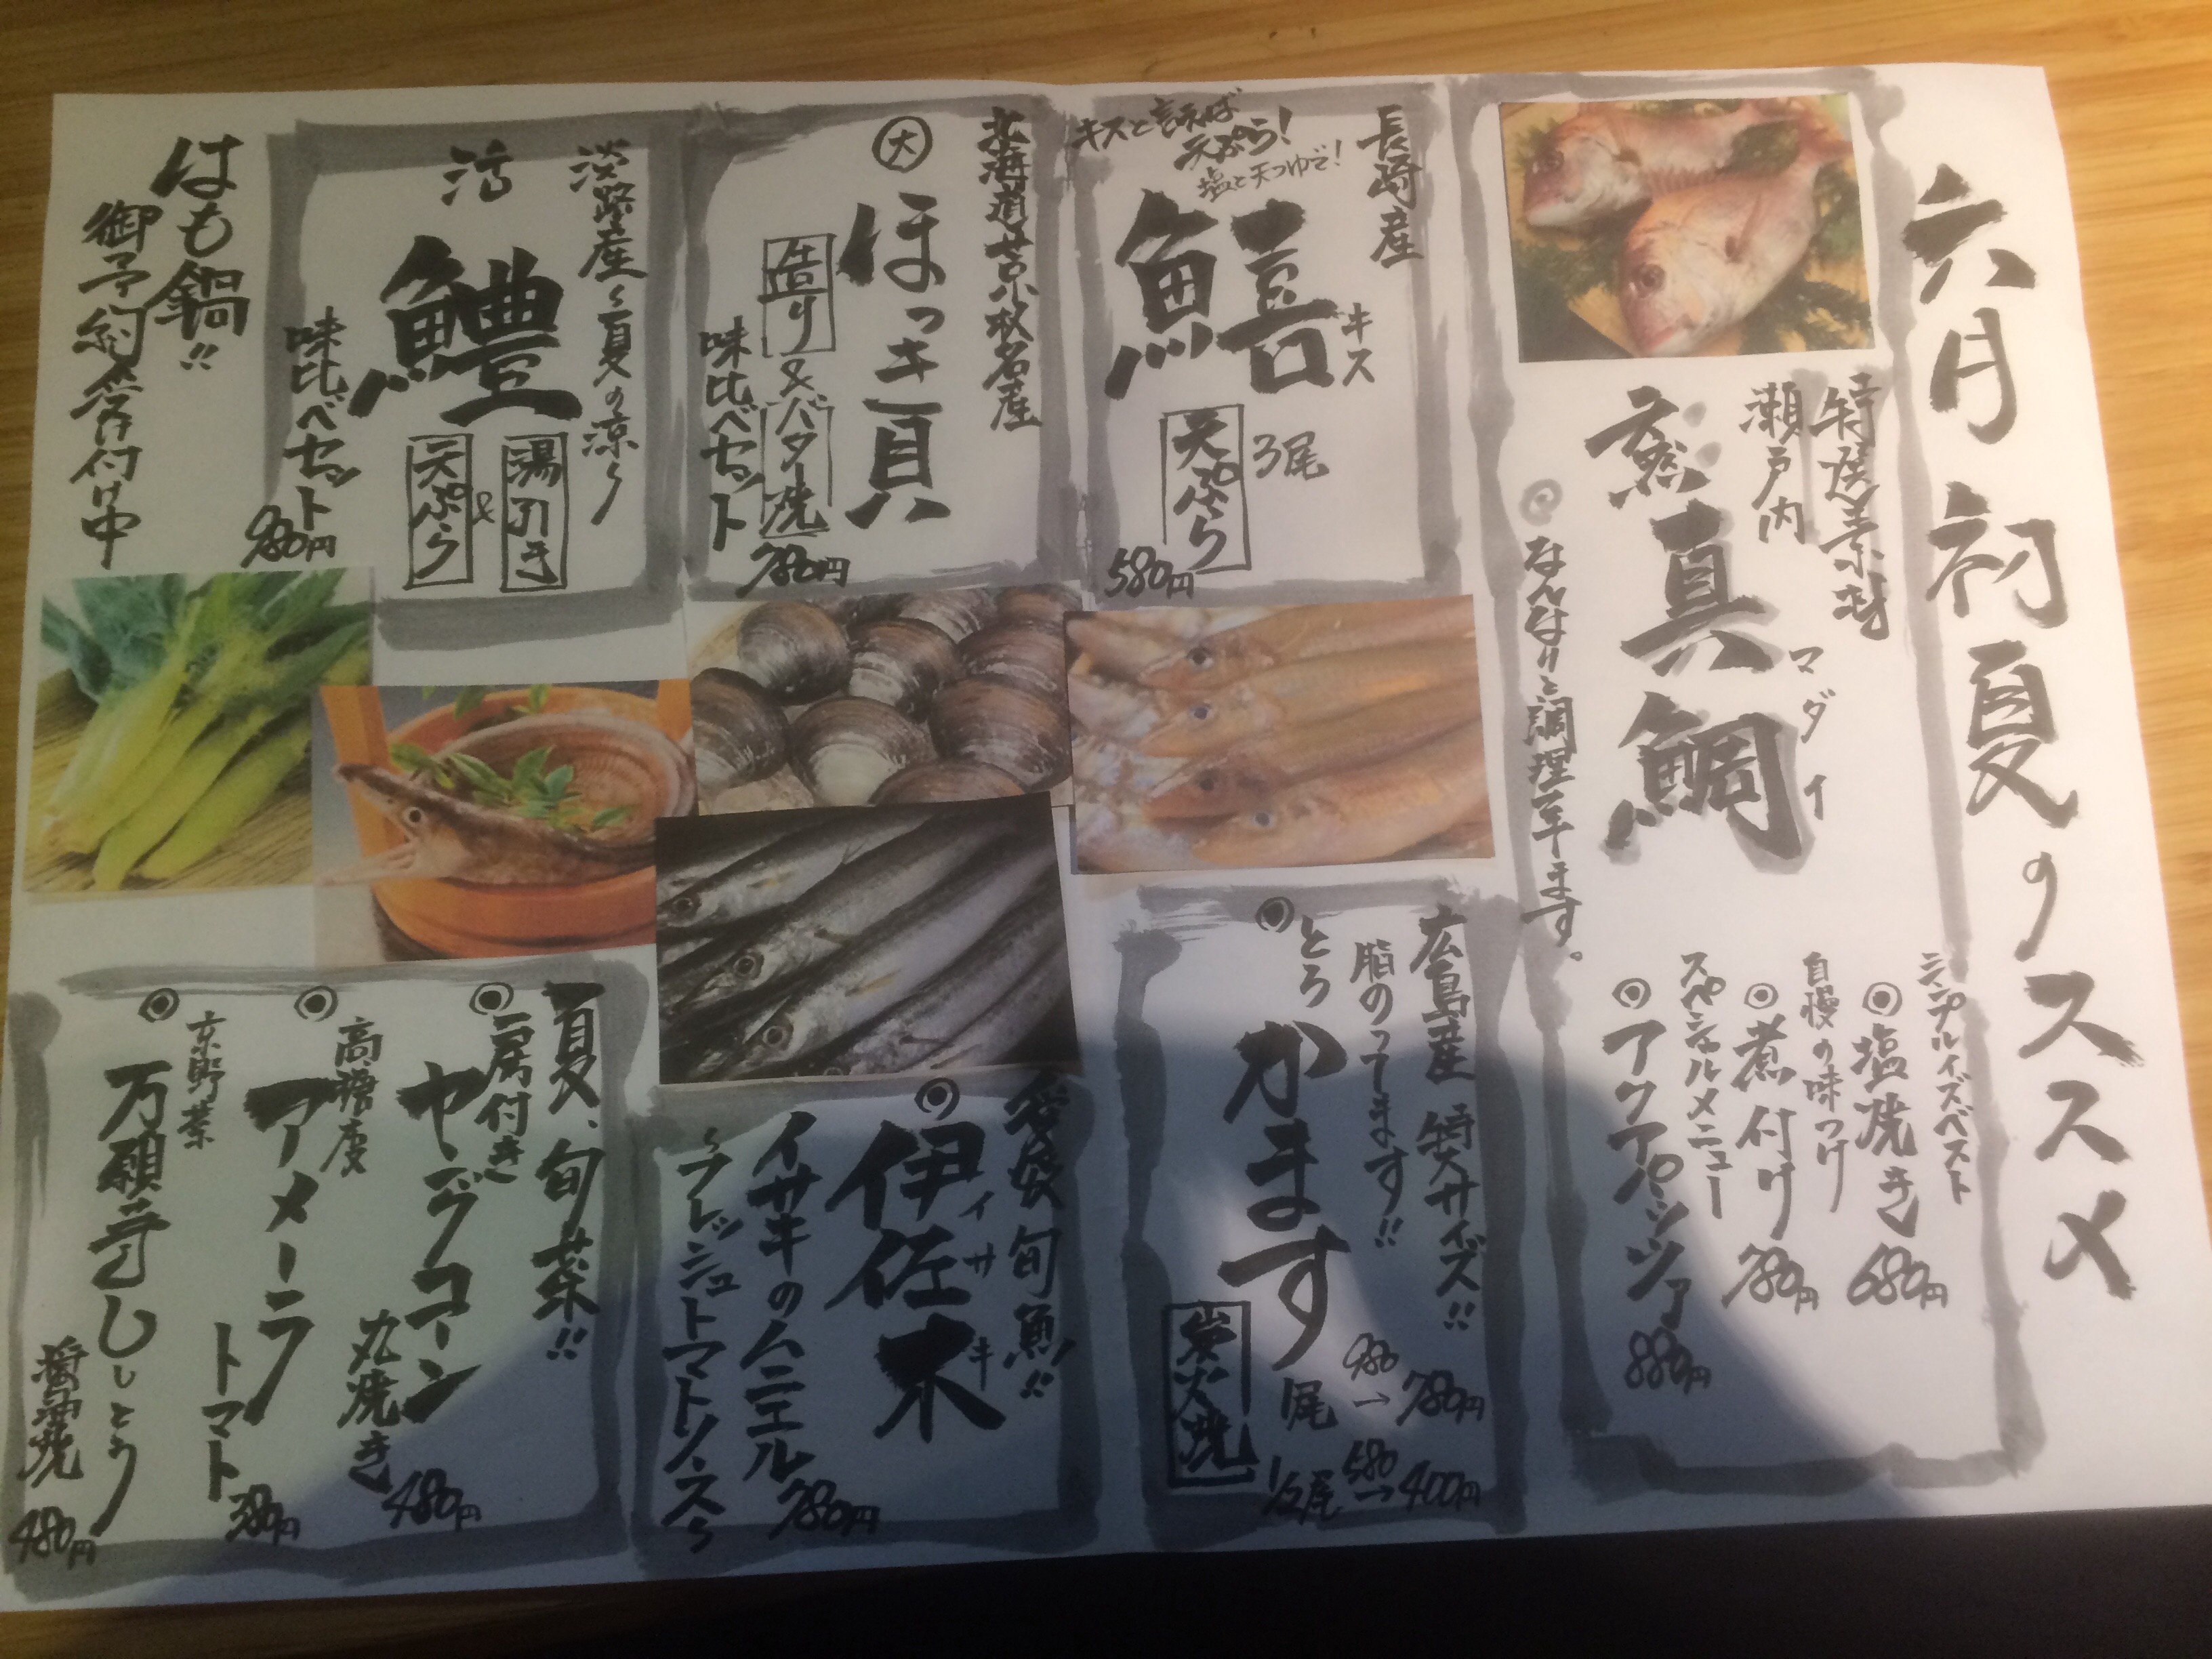 六月初夏のススメ
特選素材
瀬戸内
真鯛
マダイ
◎なんなりと調理致します。
シンプルイズベスト
◎塩焼き 680円
自慢の味つけ
◎煮付け 780円
スペシャルメニュー
◎アクアパッツァ 880円
長崎産
キスと言えば
天ぷら!
塩と天つゆで!
鱚
キス
3尾
天ぷら
580円
北海道苫小牧名産
大
ほっき貝
造り&バター焼
味比べセット
780円
淡路産〜夏の涼〜
活
鱧
湯引き
&
天ぷら
味比べセット
980円
はも鍋!!
御予約受け付け中
広島産 特大サイズ!!
脂のってます!!
◎とろ
かます
炭火焼
1尾 980→780円
1/2尾 580→400円
愛媛 旬魚!!
◎伊佐木
イサキ
イサキのムニエル
780円
〜フレッシュトマトソース〜
夏、旬菜!!
◎房付き
ヤングコーン
丸焼き
480円
◎高糖度
アメーラ
トマト
380円
◎京野菜
万願寺ししとう
醤油焼
480円